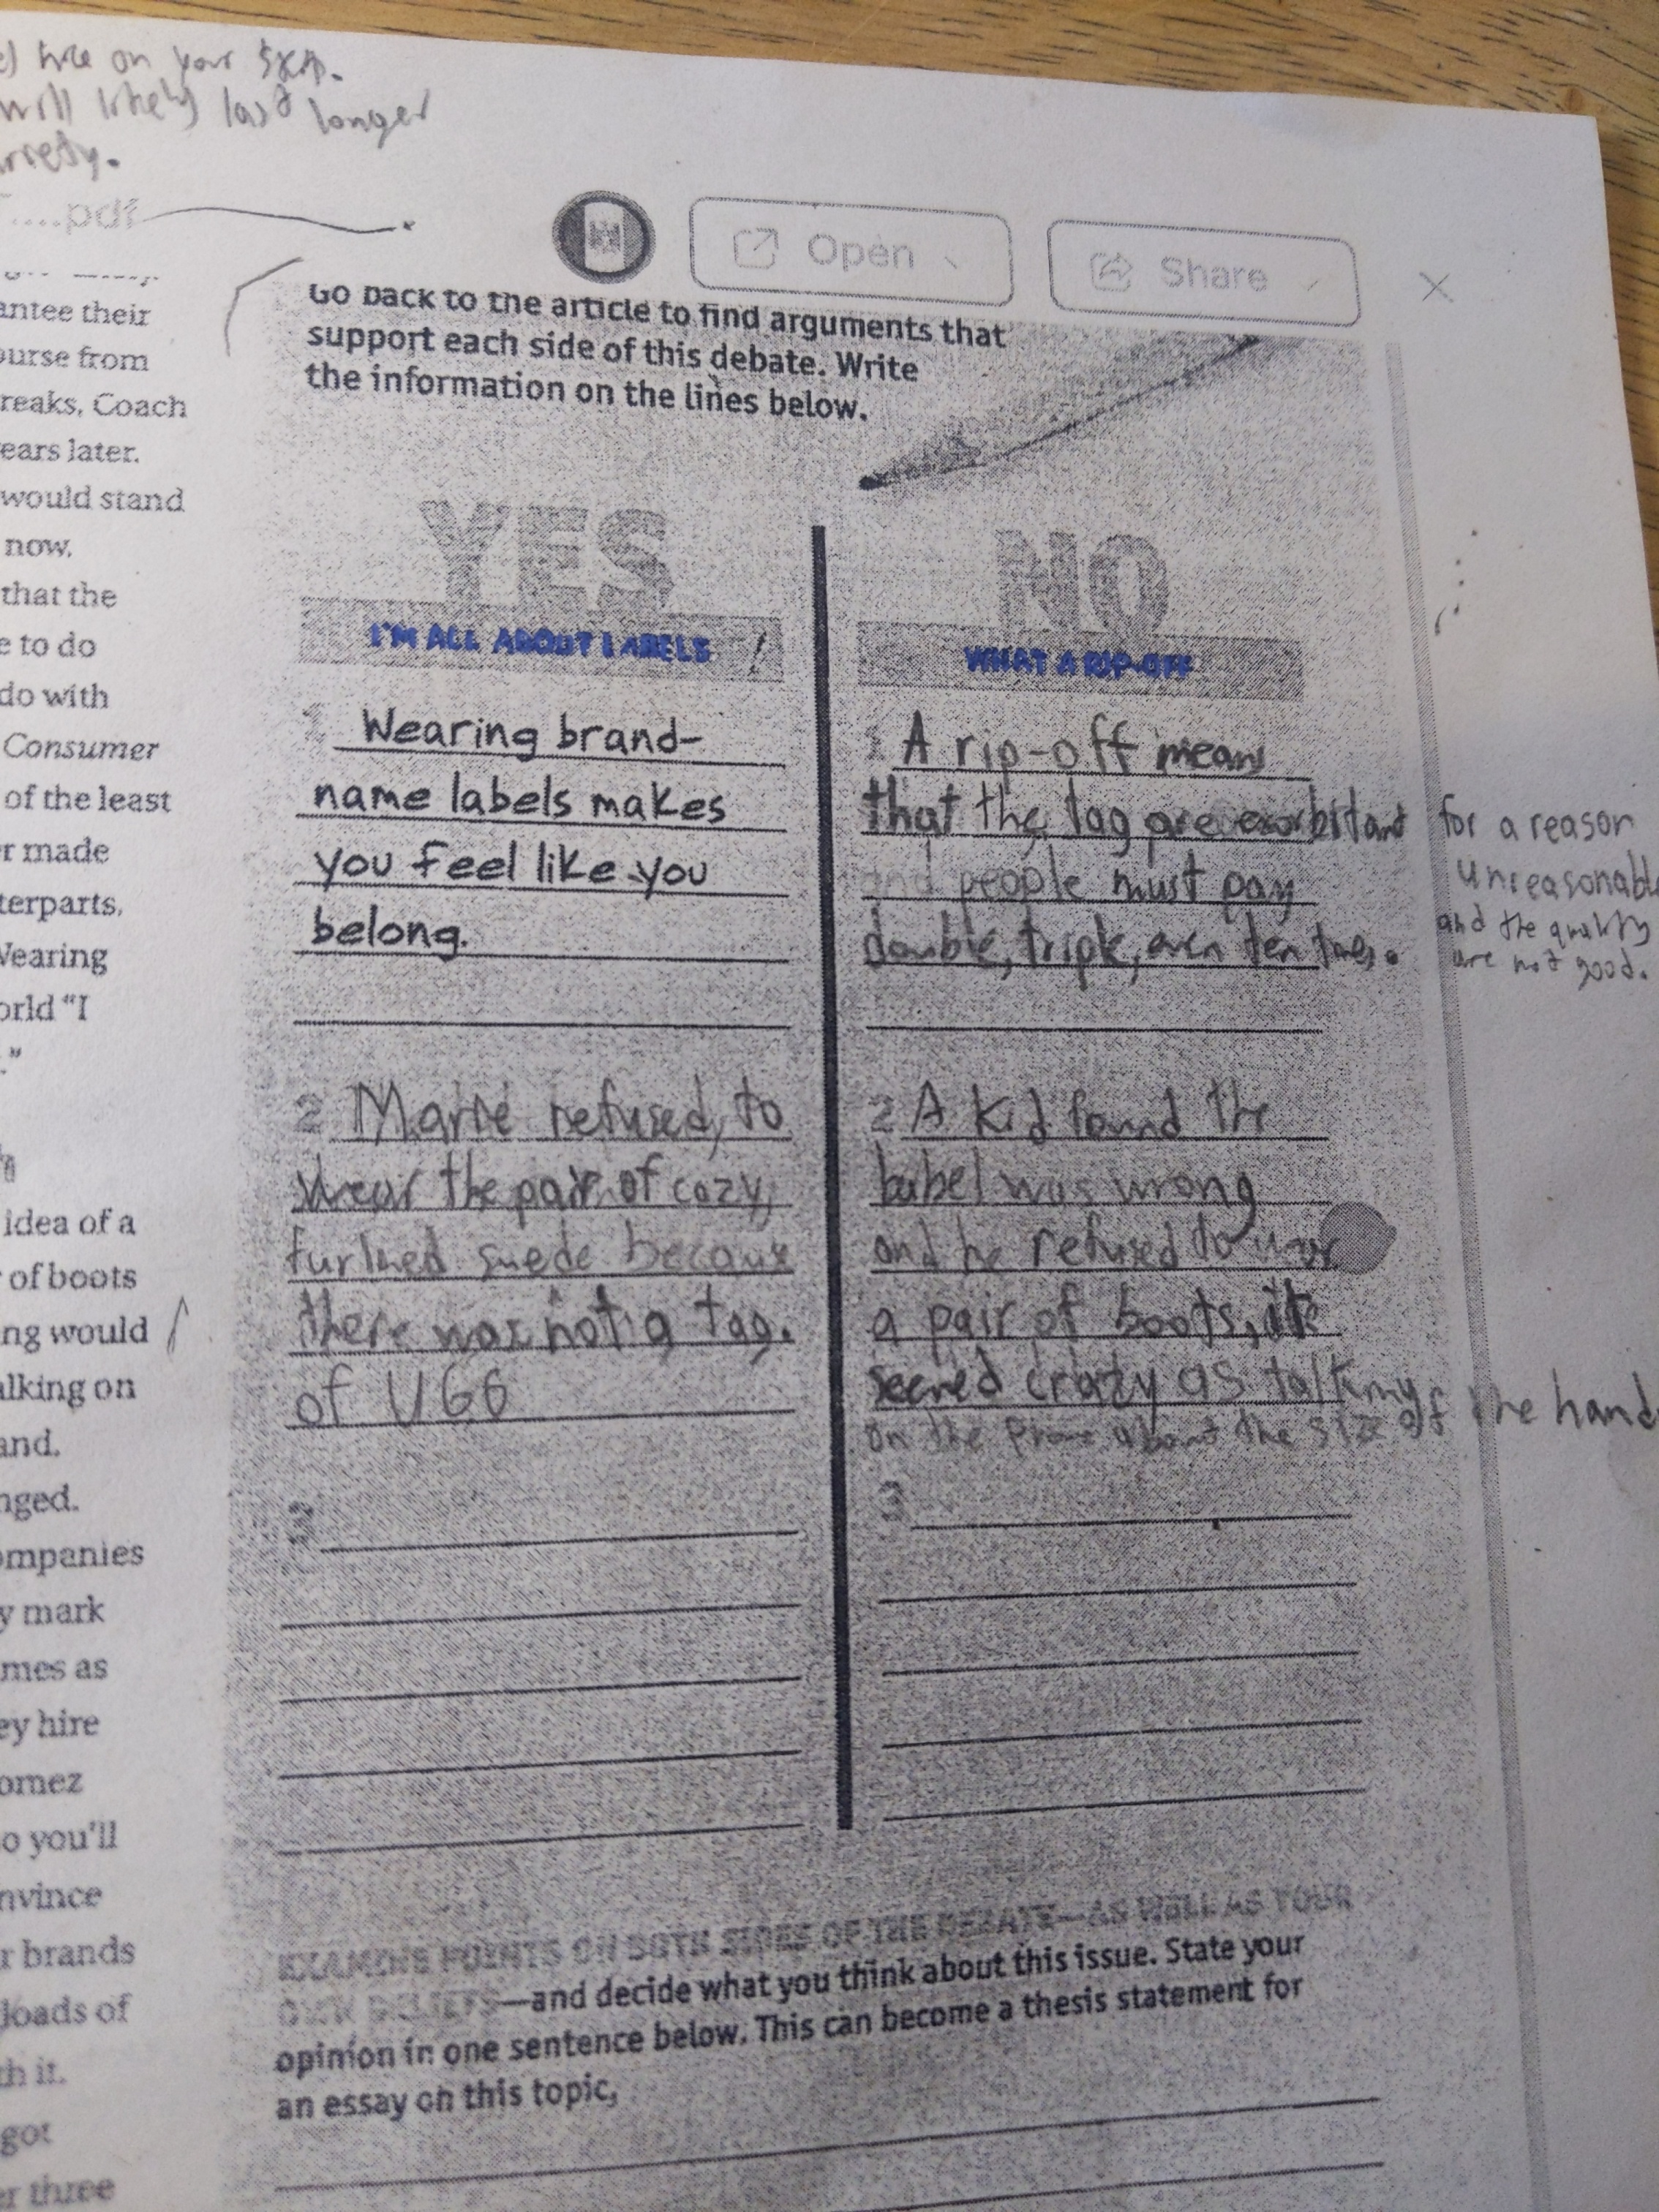 e) hre on your skin.
will likely last longer
....pdf
Open
Share
antee their
ourse from
reaks, Coach
ears later.
would stand
now.
that the
e to do
do with
Consumer
of the least
r made
terparts.
Wearing
orld "I
."
idea of a
of boots
ng would
alking on
and.
nged.
ompanies
y mark
mes as
ey hire
omez
o you'll
nvince
r brands
loads of
th it.
got
er three
Go back to the article to find arguments that
support each side of this debate. Write
the information on the lines below.
YES
I'M ALL ABOUT LABELS
1 Wearing brand-
name labels makes
you feel like you
belong.
2 Marie refused, to
wear the pair of cozy,
furlined suede because
there was not a tag.
of UGG
3
NO
WHAT A RIP-OFF
1 A rip-off means
that the tag are exorbitant for a reason
unreasonable
and people must pay
double, triple, even ten times.
and the quality
are not good.
2 A kid found the
babel was wrong
and he refused to wear
a pair of boots, it
seened crazy as talking
on the phone about the size of the hand
3
EXAMINE POINTS ON BOTH SIDES OF THE DEBATE—AS WELL AS YOUR
OWN BELIEFS—and decide what you think about this issue. State your
opinion in one sentence below. This can become a thesis statement for
an essay on this topic.